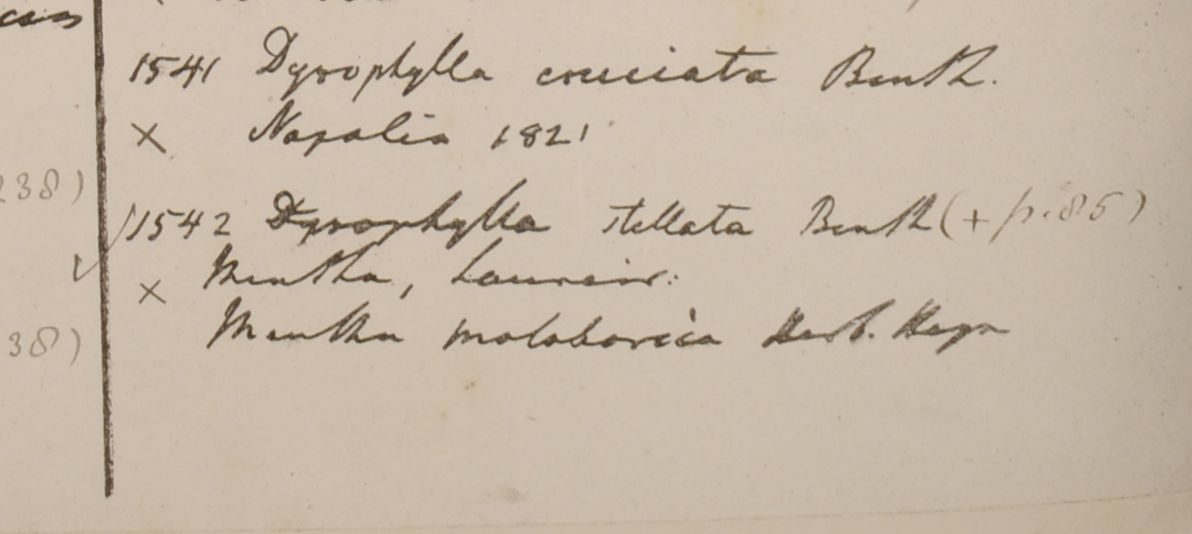 1541 Dysophylla cruciata Benth.
× Napalia 1821
238)
1542 Dysophylla stellata Benth (+ p. 85)
× Mentha, Loureir.
38) Mentha malabarica Herb. Heyn